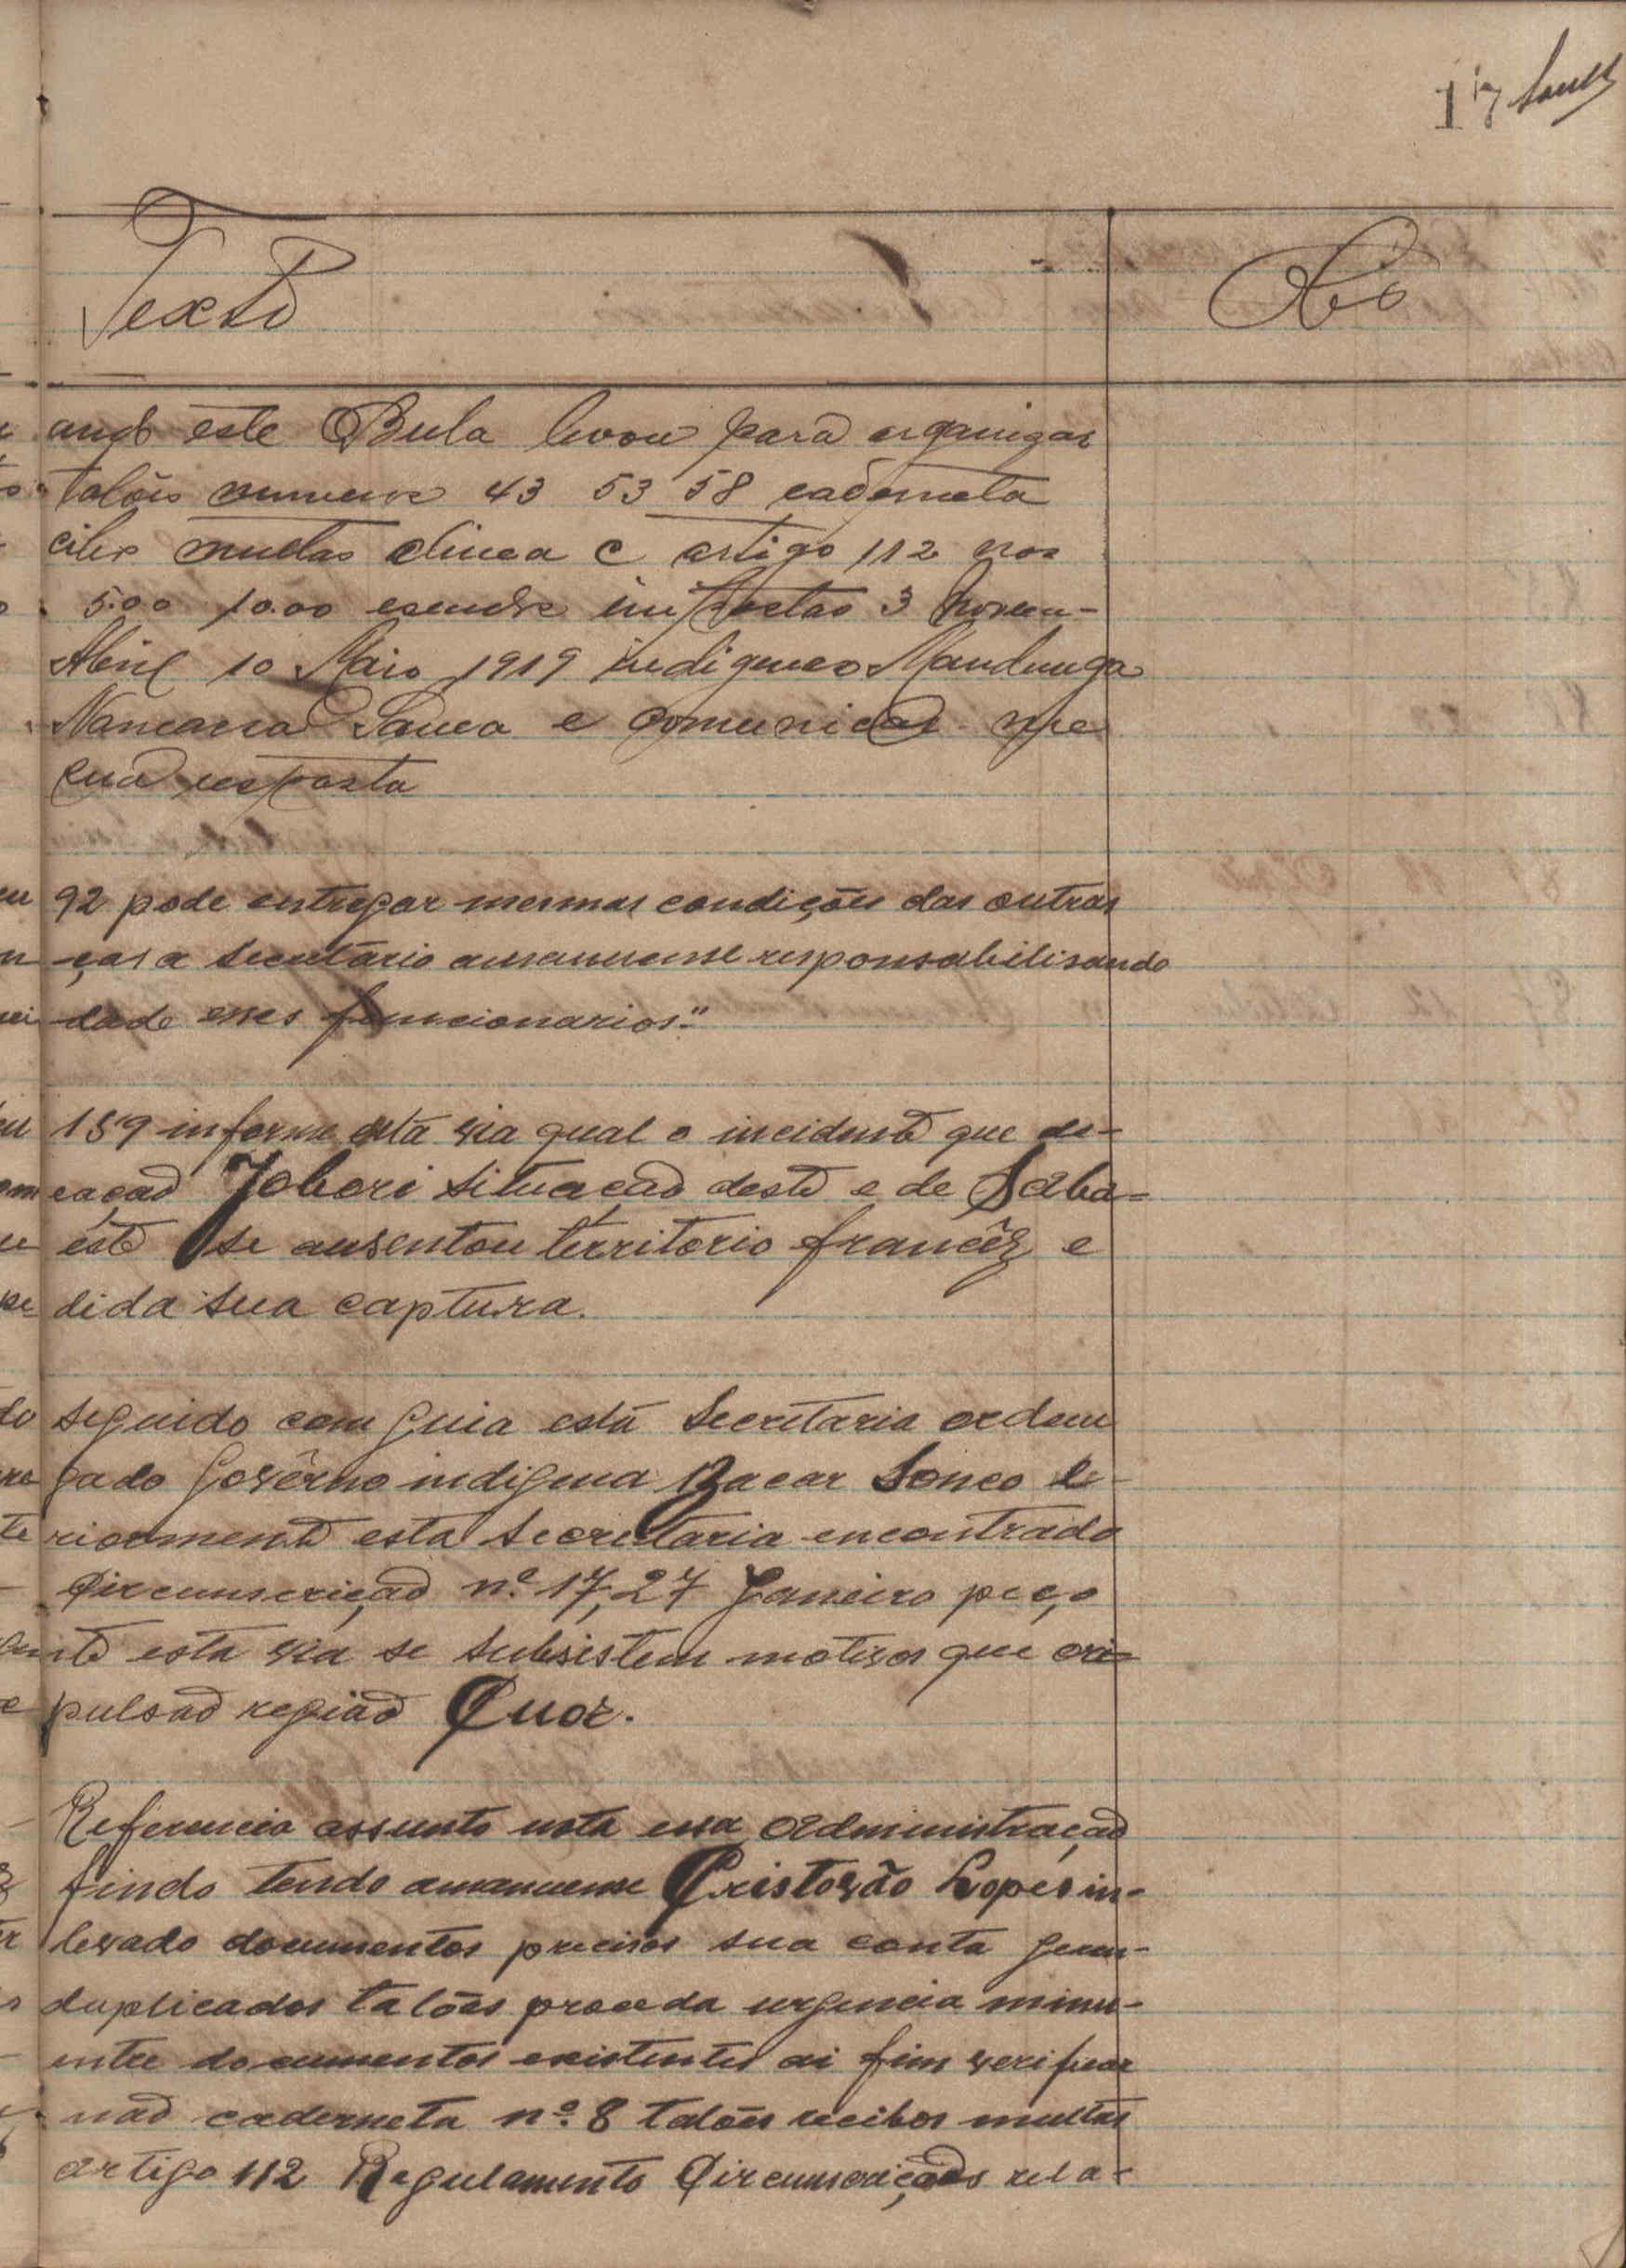 17
Texto
este Bula levou para organizar
talões numeros 43 53 58 caderneta
multas alinea C artigo 112 nos
5.00 10.00 escudos impostas 3
Abril 10 Maio 1919 indigenas Mandunga
Sanca e comunicar-me
sua resposta
92 pode entregar mesmas condições das outras
ças a secretário amanuense responsabilisando
dade esses funcionarios."
189 informe està via qual o incidente que de-
cação Jobori situação deste e de Saba-
este se ausentou território francêz e
dida sua captura.
seguido com guia està Secretaria ordem
gado Govêrno indigena Bacar Sonco
riormente esta Secretaria encontrado
Circunscrição nº 17, 27 Janeiro peço
esta via se subsistem motivos que ori-
pulsão região Cuor.
Referencia assunto nota essa administração
findo tendo amanuense Cristovão Lopes in-
levado documentos precisos sua conta geren-
duplicados talões proceda urgencia minu-
entre documentos existentes ai fim verificar
não caderneta nº 8 talões recibos multas
artigo 112 Regulamento Circunscrições rela-